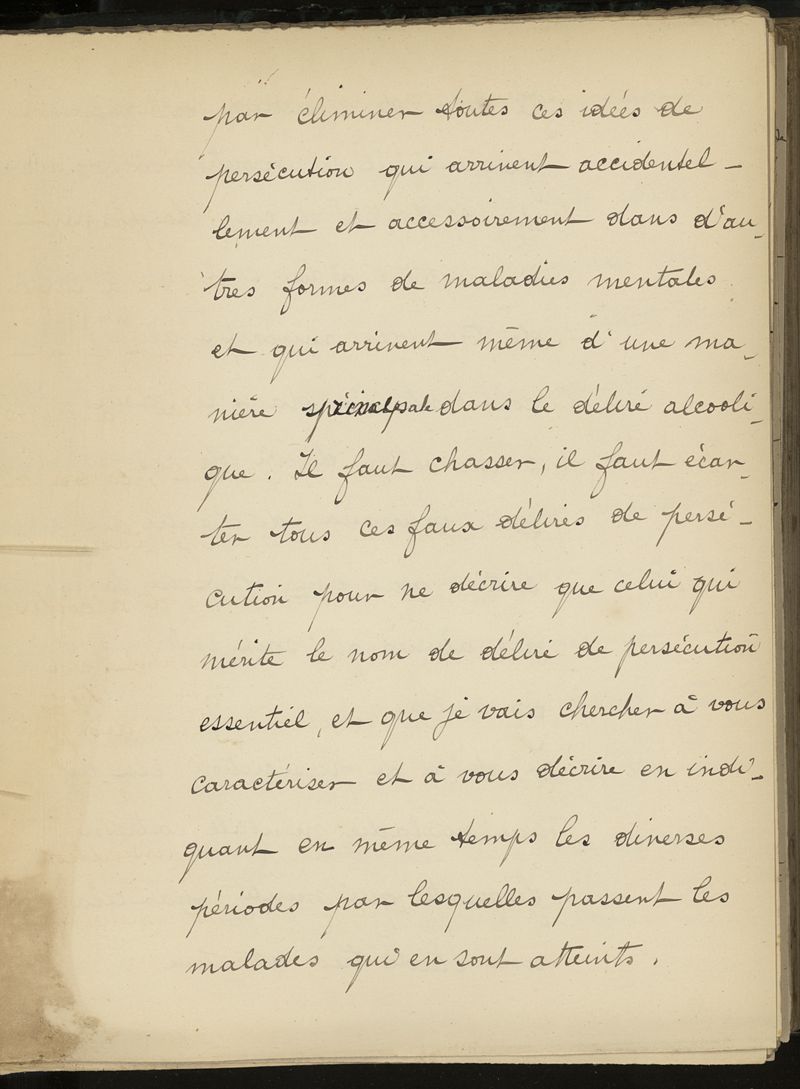 par éliminer toutes ces idées de
persécution qui arrivent accidentel-
lement et accessoirement dans d'au-
tres formes de maladies mentales
et qui arrivent même d'une ma-
nière principale dans le délire alcooli-
que. Il faut chasser, il faut écar-
ter tous ces faux délires de persé-
cution pour ne décrire que celui qui
mérite le nom de délire de persécution
essentiel, et que je vais chercher à vous
caractériser et à vous décrire en indi-
quant en même temps les diverses
périodes par lesquelles passent les
malades qui en sont atteints.